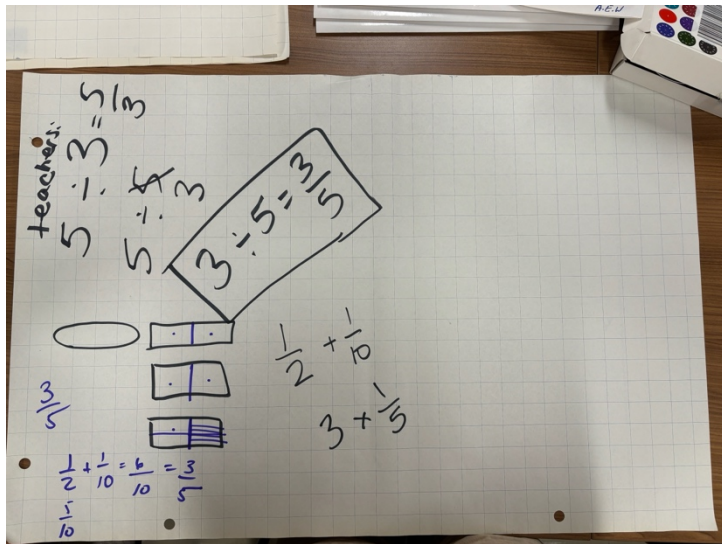 A.E.W
teachers:
5 ÷ 3 = 5/3
5 ÷ 3
3 ÷ 5 = 3/5
1/2 + 1/10
3 + 1/5
3/5
1/2 + 1/10 = 6/10 = 3/5
5/10